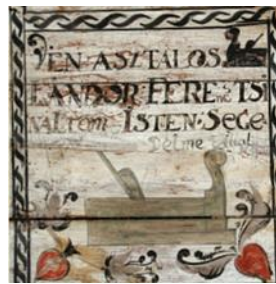 VEN·ASZTALOS
LANDOR·FERENTSI
NALTOM·ISTEN·SEGE